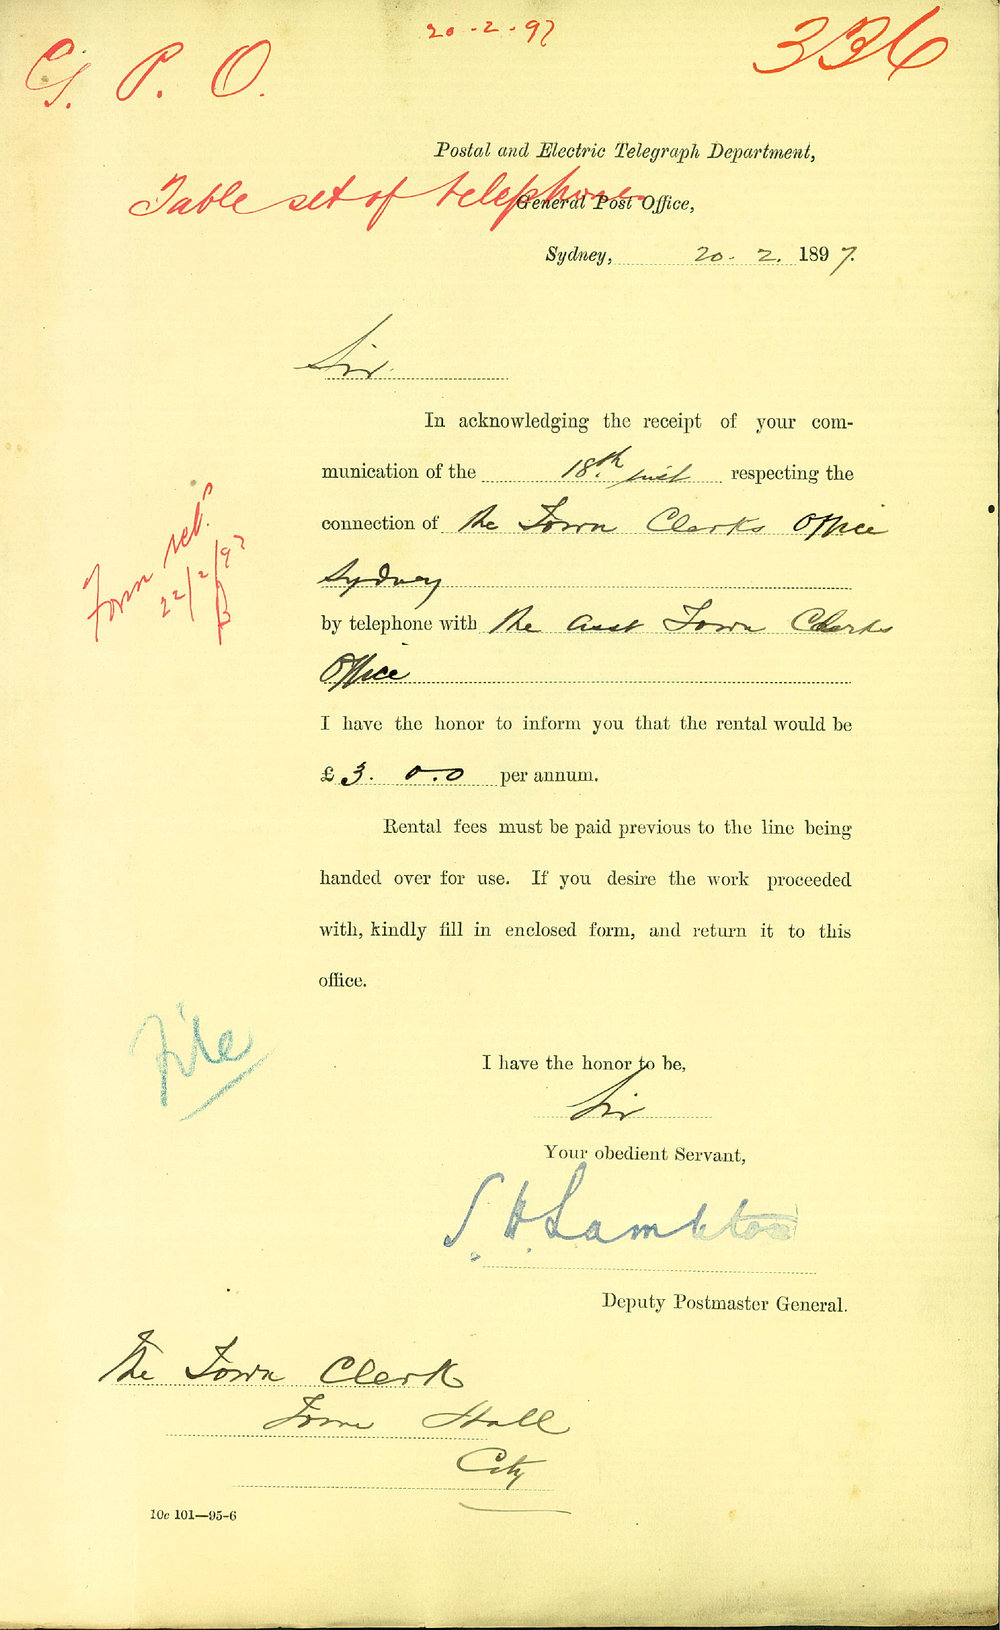 20-2-97
336
G. P. O.
Postal and Electric Telegraph Department,
Table set of telephones
General Post Office,
Sydney, 20-2. 1897.
Sir
In acknowledging the receipt of your com-
munication of the 18th inst respecting the
connection of the Town Clerks Office
Sydney
by telephone with the Asst Town Clerks
Office
I have the honor to inform you that the rental would be
£3. 0.0 per annum.
Rental fees must be paid previous to the line being
handed over for use. If you desire the work proceeded
with, kindly fill in enclosed form, and return it to this
office.
Form retd.
22/2/97
File
I have the honor to be,
Sir
Your obedient Servant,
S. H. Lambton
Deputy Postmaster General.
The Town Clerk
Town Hall
City
10c 101—95-6